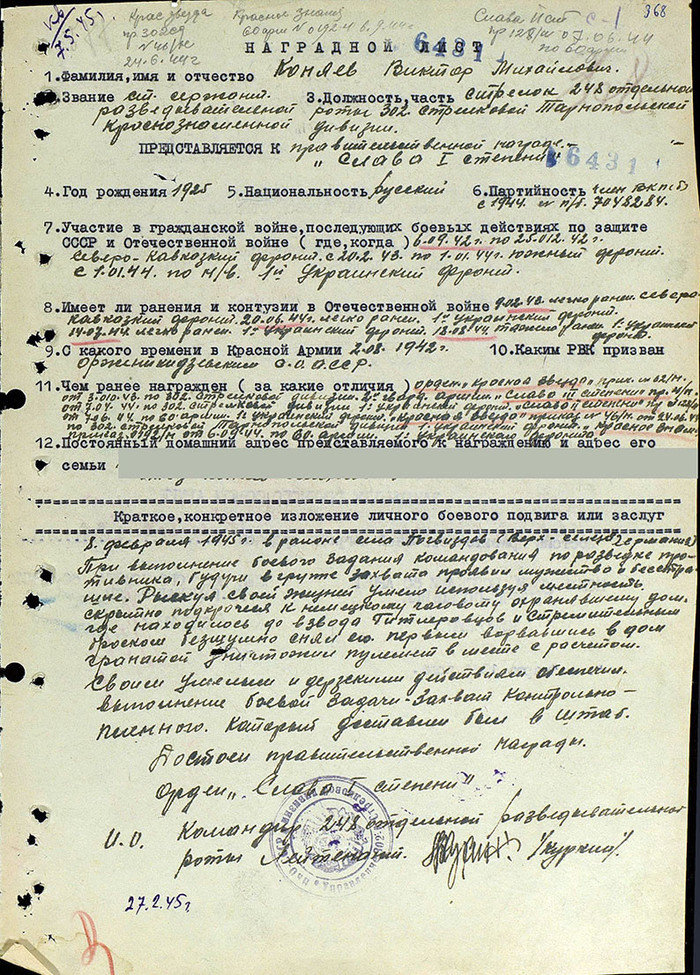 Крас. звезда
пр 302сд
N 46/н
24.6.44 г
Красное знамя
60 арм N 0192-н 6.9.44 г
Слава II ст
пр 128/н 07.06.44
по 60 арм
368
7.5.45 г.
НАГРАДНОЙ ЛИСТ
6431
1.Фамилия,имя и отчество Коняев Виктор Михайлович.
2.Звание ст. сержант. 3.Должность,часть стрелок 248 отдельной
разведывательной роты 302 стрелковой Тарнопольской
Краснознаменной дивизии.
ПРЕДСТАВЛЯЕТСЯ К правительственной награде –
„Слава I степени"
6431
4.Год рождения 1925 5.Национальность русский 6.Партийность член ВКП(б)
с 1944. N п/б. 7048284.
7.Участие в гражданской войне,последующих боевых действиях по защите
СССР и Отечественной войне ( где,когда ) 6.09.42 г. по 25.012.42 г.
Северо-Кавкозкий фронт. с 20.2.43. по 1.01.44 г. южный фронт.
с 1.01.44. по н/в. 1й Украинский фронт.
8.Имеет ли ранения и контузии в Отечественной войне 9.02.43. легко ранен. Северо-
Кавказкий фронт. 20.06.44 г. легко ранен. 1й Украинский фронт.
14.07.44 легко ранен. 1й Украинский фронт. 18.08.44. тяжело ранен. 1й Украинский
фронт.
9.С какого времени в Красной Армии 2.08.1942 г. 10.Каким РВК призван
Орженикидзевским С.О.А.ССР.
11.Чем ранее награжден ( за какие отличия ) орден „Красное звезда" прик. N 62/н.
от 3.010.43. по 302. стрелковой дивизии. „Слава III степени" пр.
от 7.04.44. по 302. стрелковой дивизии 1й украинский фронт. „Слава II степени" пр.
от 7.06.44. по 60 армии. 1й украинский фронт. „Красная звезда" приказ N 46/н. от 24.06.44
по 302. стрелковой Тарнопольской дивизии 1й украинский фронт. „Красное знамя"
приказ 0192/н от 6.09.44. по 60 армии. 1й Украинского фронта.
12.Постоянный домашний адрес представляемого к награждению и адрес его
семьи
Краткое,конкретное изложение личного боевого подвига или заслуг
8. февраля 1945 г. в районе села Погвиздов (Верх- Германия)
При выполнение боевого задания командования по разведке про-
тивника, будучи в группе захвата проявил мужество и бесстра-
шие. Рискуя своей жизний умело используя местность
скрытно подкрался к немецкому часовому охранявшему дом.
где находилось до взвода Гитлеровцев и стремительным
броском безшумно снял его. первым ворвавшись в дом
гранатой уничтожил пулемет в месте с расчетом.
Своими умелыми и дерзскими действиям обеспечил
выполнение боевой задачи – захват контрольно –
пленного. Который доставлен был в штаб.
Достоен правительственной награды.
Орден „Слава I степени"
И.О. Командир 248 отдельной разведывательной
роты Лейтенант. /Куркин/.
27.2.45 г.